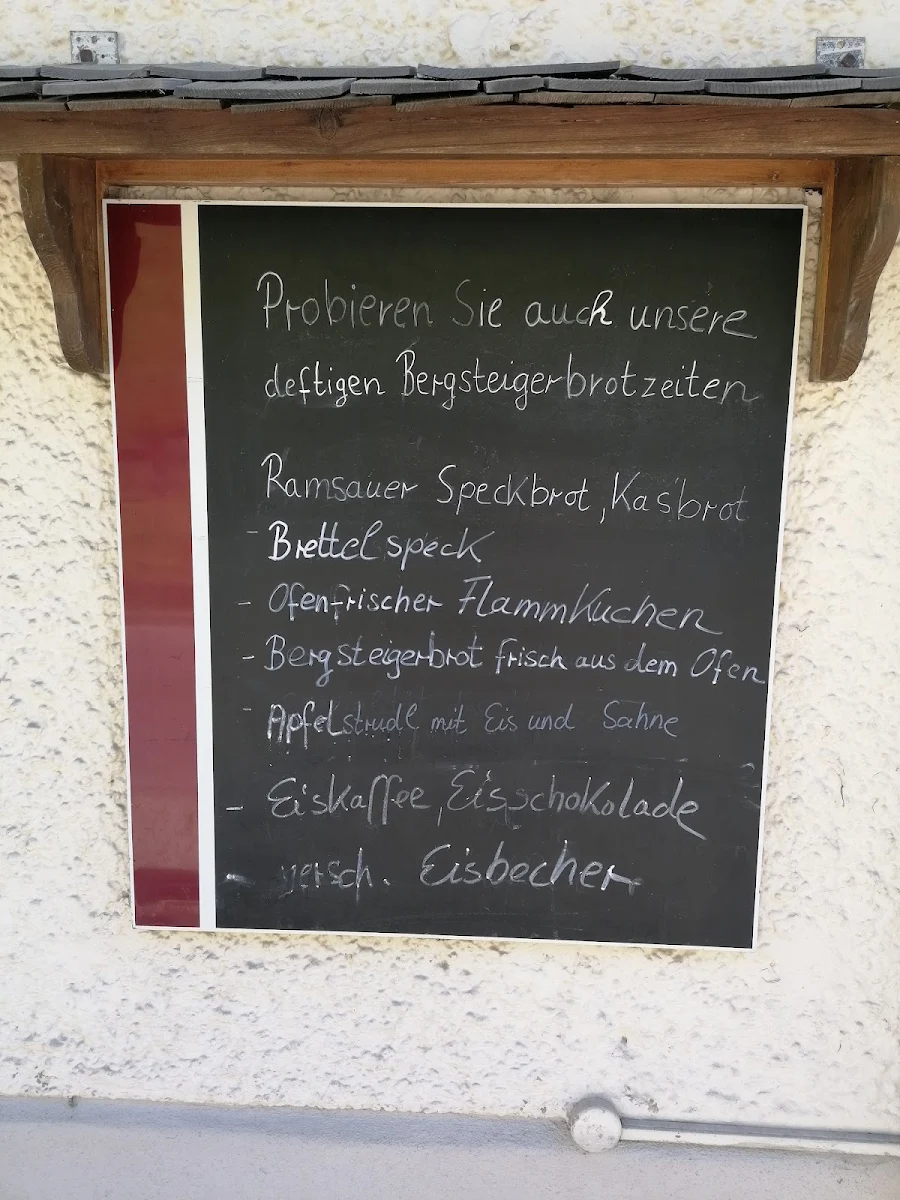 Probieren Sie auch unsere
deftigen Bergsteigerbrotzeiten
Ramsauer Speckbrot, Kas'brot
- Brettelspeck
- Ofenfrischer Flammkuchen
- Bergsteigerbrot frisch aus dem Ofen
- Apfelstrudl mit Eis und Sahne
- Eiskaffee, Eisschokolade
- versch. Eisbecher